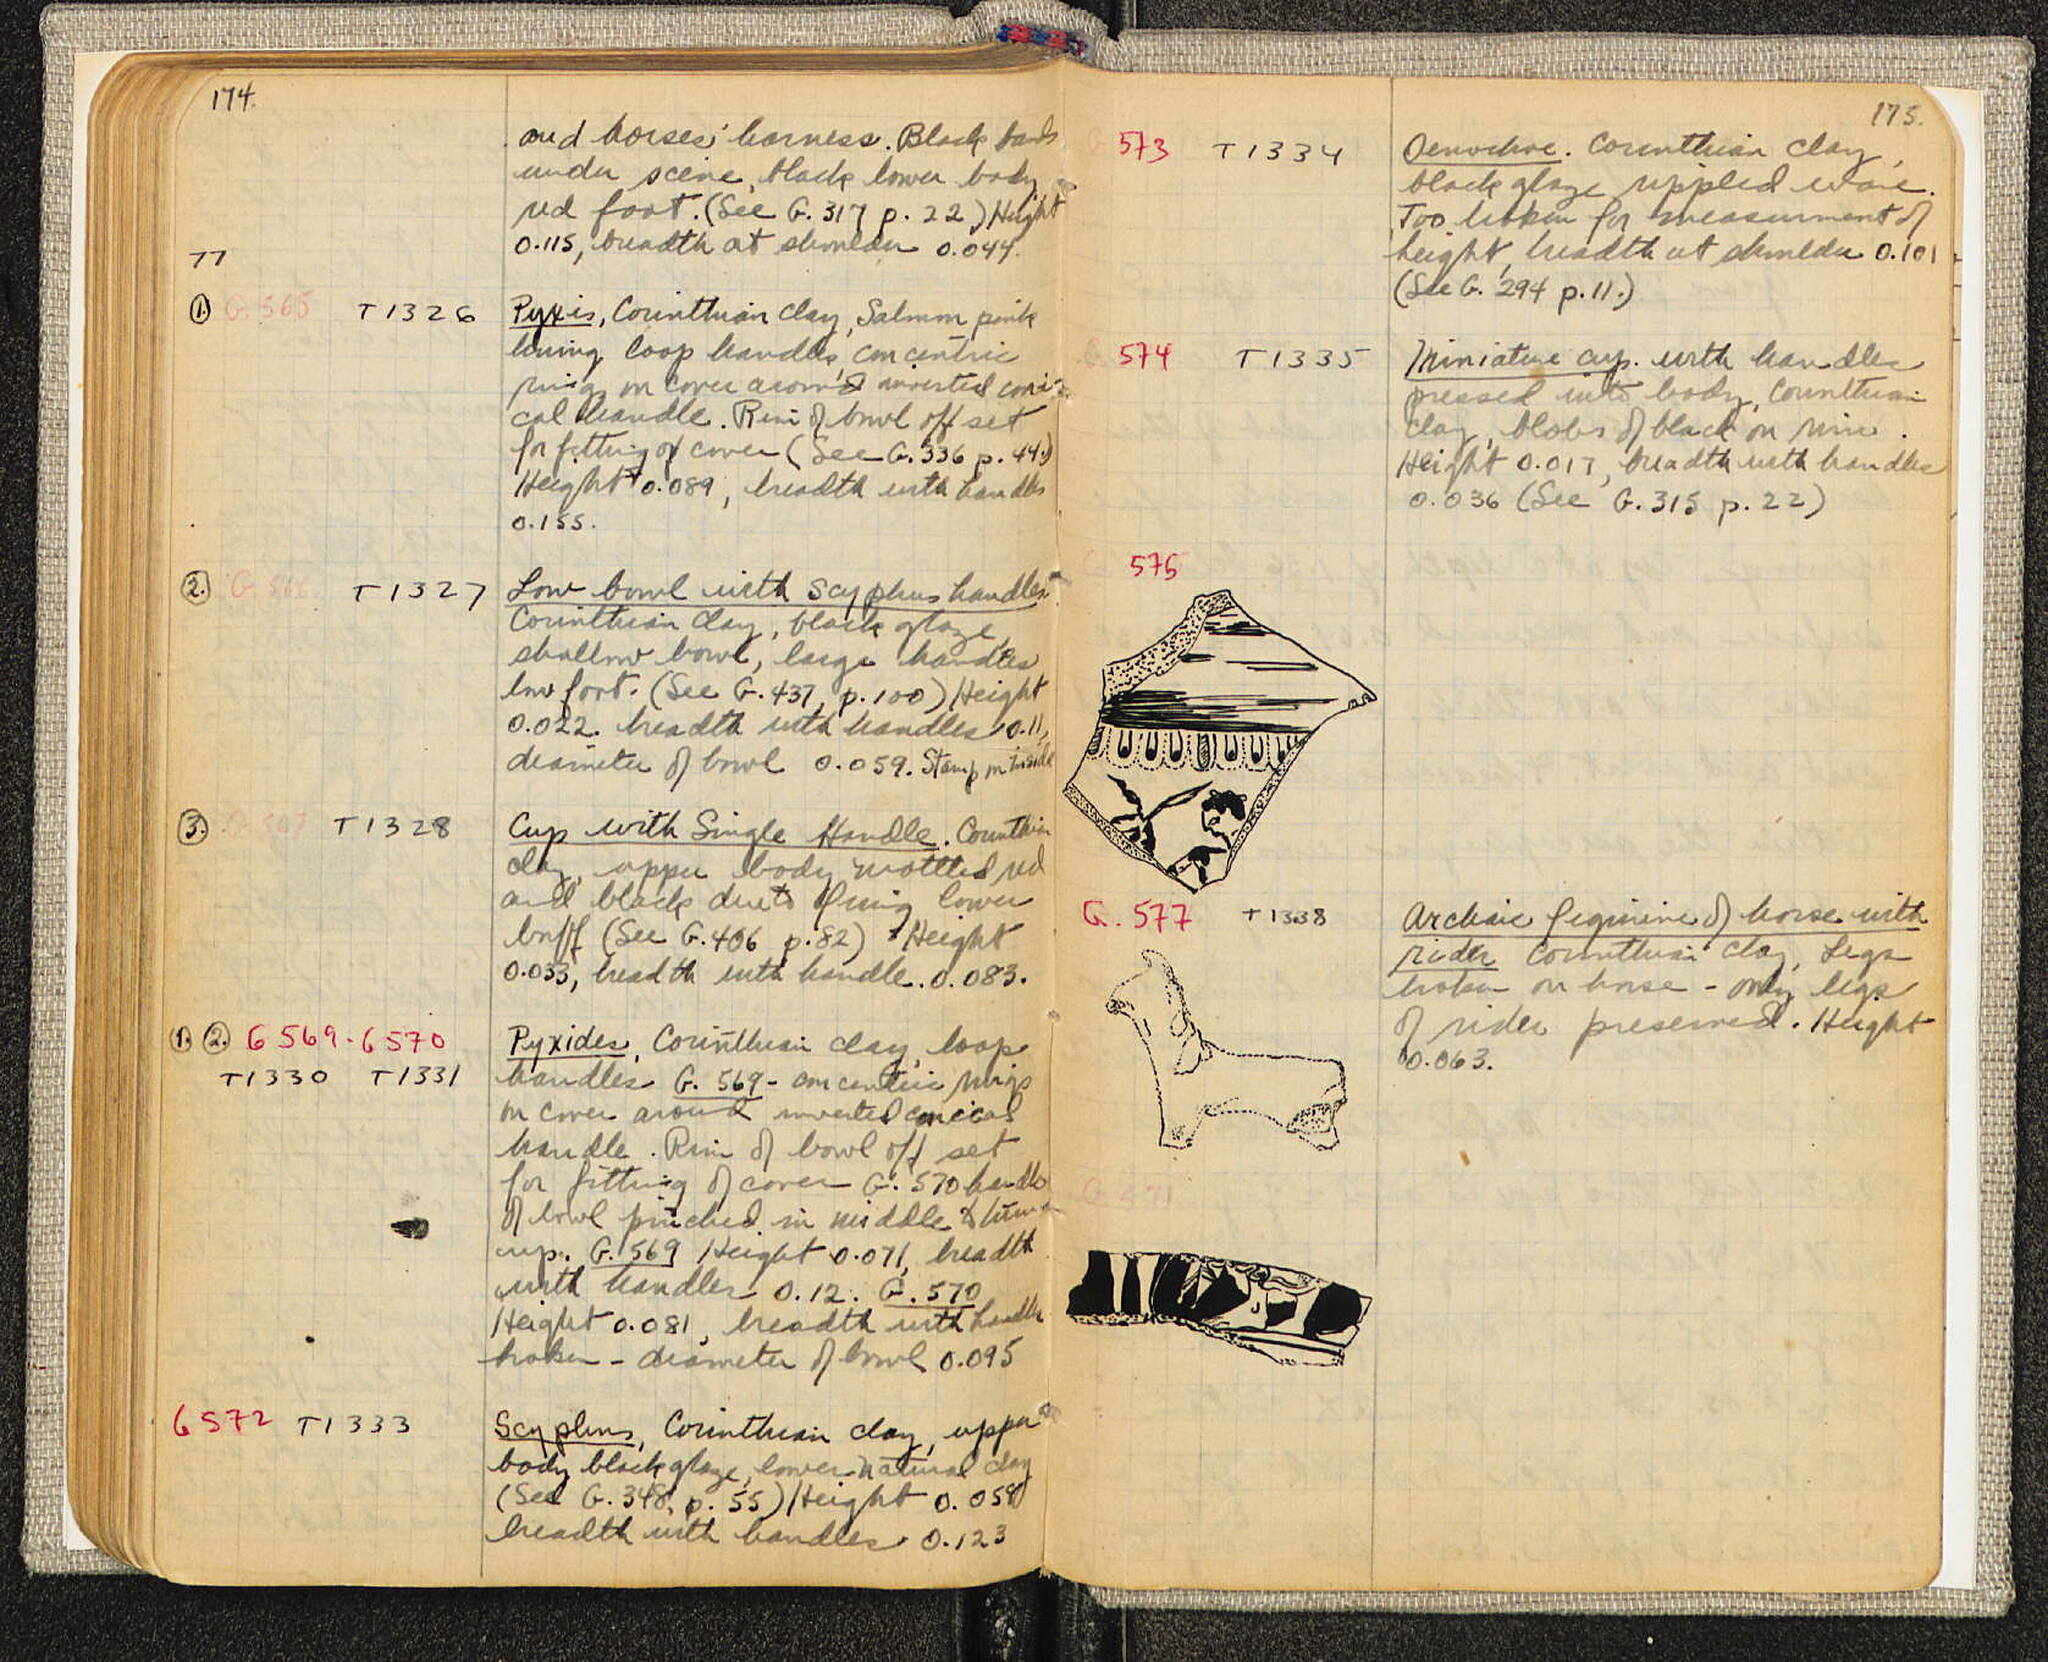 174.
and horses' harness. Black bands
under scene, black lower body,
red foot. (See G. 317 p. 22) Height
0.115, breadth at shoulder 0.044.
77
1. G. 565 T1326 Pyxis, Corinthian clay, Salmon pink
loop handles, concentric
rings on cover around inverted coni-
cal handle. Rim of bowl off set
for fitting of cover (See G. 336 p. 44.)
Height 0.089, breadth with handles
0.155.
2. G. 566. T1327 Low bowl with Scyphus handles.
Corinthian clay, black glaze,
shallow bowl, large handles
low foot. (See G. 437, p. 100) Height
0.022. breadth with handles 0.11,
diameter of bowl 0.059. Stamp on inside
3. G. 567 T1328 Cup with Single Handle. Corinthian
clay, upper body mottled red
and black due to firing lower
buff (See G. 406 p. 82) Height
0.033, breadth with handle. 0.083.
1. 2. G 569 - G 570 Pyxides, Corinthian clay, loop
T1330 T1331 handles G. 569 - concentric rings
on cover around inverted conical
handle. Rim of bowl off set
for fitting of cover G. 570 handle
of bowl pinched in middle & turn
up. G. 569 Height 0.071, breadth
with handles 0.12. G. 570
Height 0.081, breadth with handles
broken - diameter of bowl 0.095
G 572 T1333 Scyphus, Corinthian clay, upper
body black glaze, lower natural clay
(See G. 348, p. 55) Height 0.058
breadth with handles 0.123
175.
G 573 T1334 Oenochoe. Corinthian clay,
black glaze rippled ware.
Too broken for measurement of
height, breadth at shoulder 0.101
(See G. 294 p. 11.)
G 574 T1335 Miniature cup. with handles
pressed into body, Corinthian
clay, blobs of black on rim.
Height 0.017, breadth with handles
0.036 (See G. 315 p. 22)
G 576
G. 577 T1338 Archaic figurine of horse with
rider Corinthian clay, Legs
broken on horse - only legs
of rider preserved. Height
0.063.
G. 571